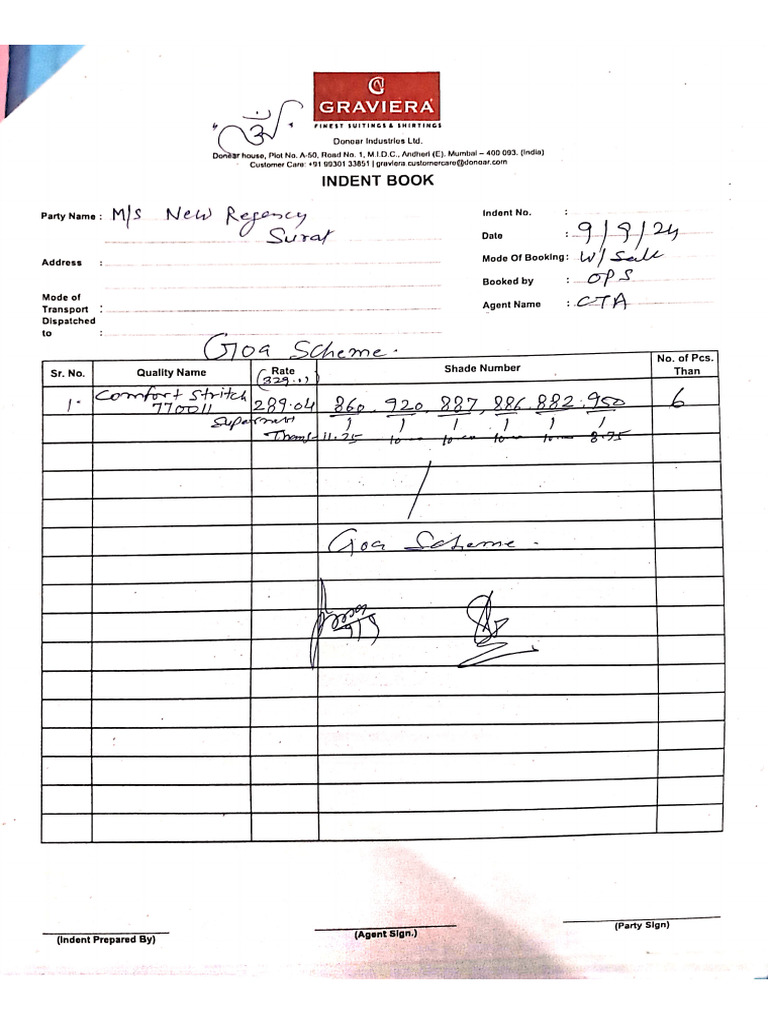 GRAVIERA
FINEST SUITINGS & SHIRTINGS
Donear Industries Ltd.
Donear house, Plot No. A-50, Road No. 1, M.I.D.C., Andheri (E). Mumbai – 400 093. (India)
Customer Care: +91 99301 33851 | graviera.customercare@donear.com
INDENT BOOK
Party Name : M/S New Regency
Surat
Address :
Mode of Transport :
Dispatched to :
Indent No. :
Date : 9/9/24
Mode Of Booking : W/Sale
Booked by : OPS
Agent Name : CTA
Goa Scheme.
Sr. No. Quality Name Rate Shade Number No. of Pcs. Than
(329.00)
1. Comfort Stritch 289.04 860 920 887 886 882 950 6
770011 1 1 1 1 1
11.25 10 10 10 10 8.75
Goa Scheme.
(Indent Prepared By)
(Agent Sign.)
(Party Sign)